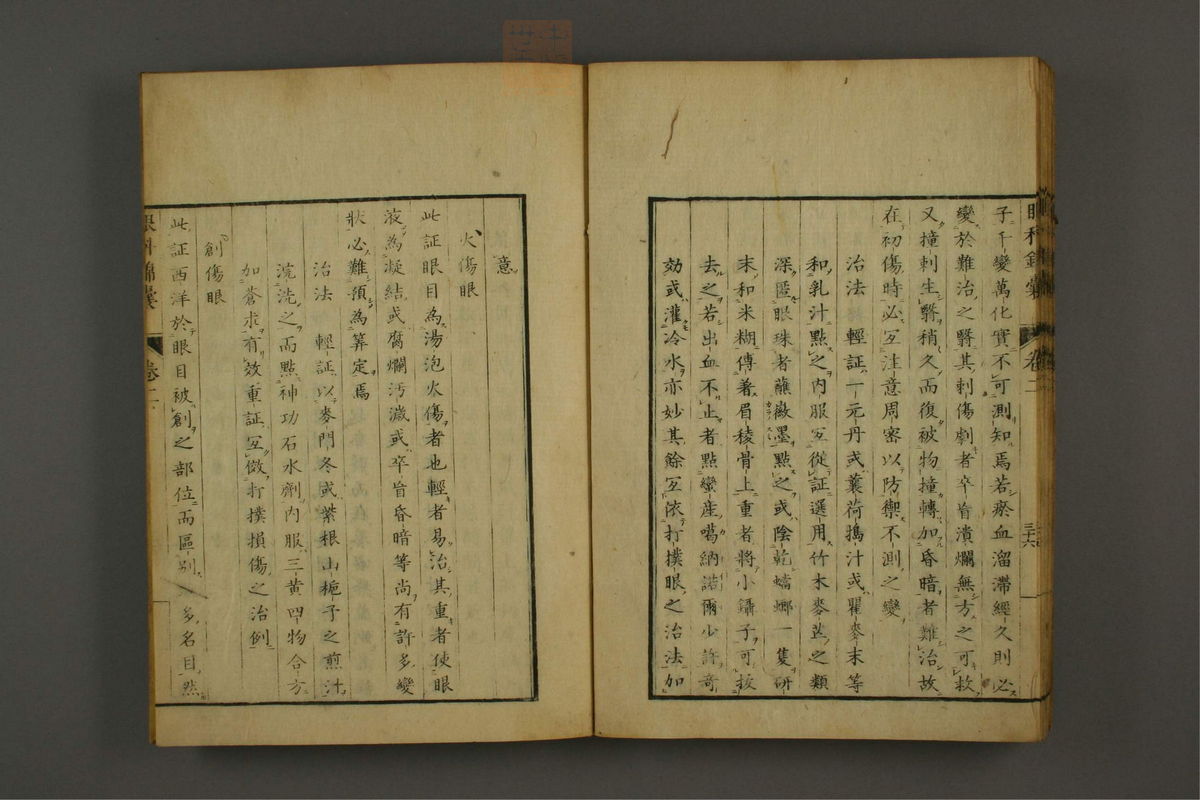 眼科錦囊 卷二 三十六
子千變萬化實不可測知焉若瘀血溜滯經久則必
變於難治之翳其刺傷劇者卒盲潰爛無方之可救
又撞刺生翳稍久而復被物撞轉加昏暗者難治故
在初傷時必互注意周密以防禦不測之變
治法 輕証一元丹或蘘荷搗汁或瞿麥末等
和乳汁點之内服互從証選用竹木麥芒之類
深匿眼珠者蘸徽墨點之或陰乾蠐螬一隻研
末和米糊傅著眉稜骨上重者將小鑷子可拔
去之若出血不止者點蠻産噶納諾爾少許奇
効或灌冷水亦妙其餘互依打撲眼之治法加
意
火傷眼
此証眼目為湯泡火傷者也輕者易治其重者使眼
液為凝結或腐爛汚濊或卒盲昏暗等尚有許多變
狀必難預為筭定焉
治法 輕証以麥門冬或紫根山梔子之煎汁
洗洗之而點神功石水劑内服三黃四物合方
加蒼朮有效重証互倣打撲損傷之治例
創傷眼
此証西洋於眼目被創之部位而區別 多名目然
眼科錦囊 卷二